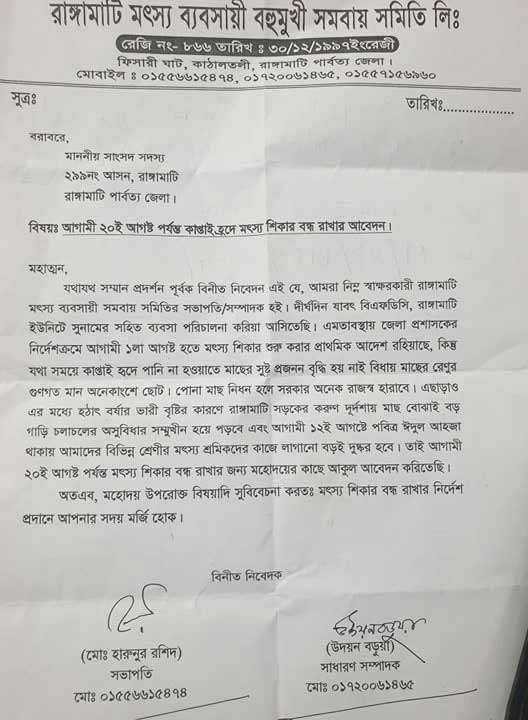 রাঙ্গামাটি মৎস্য ব্যবসায়ী বহুমুখী সমবায় সমিতি লিঃ
রেজি নং- ৮৬৬ তারিখ : ৩০/১২/১৯৯৭ইংরেজী
ফিসারী ঘাট, কাঠালতলী, রাঙ্গামাটি পার্বত্য জেলা।
মোবাইল : ০১৫৫৬৬১৫৪৭৪, ০১৭২০০৬১৪৬৫, ০১৫৫৭১৫৬৯৬০
সুত্রঃ
তারিখঃ...................
বরাবরে,
মাননীয় সাংসদ সদস্য
২৯৯নং আসন, রাঙ্গামাটি
রাঙ্গামাটি পার্বত্য জেলা।
বিষয়ঃ আগামী ২০ই আগষ্ট পর্যন্ত কাপ্তাই হৃদে মৎস্য শিকার বন্ধ রাখার আবেদন।
মহাত্মন,
যথাযথ সম্মান প্রদর্শন পূর্বক বিনীত নিবেদন এই যে, আমরা নিম্ন স্বাক্ষরকারী রাঙ্গামাটি
মৎস্য ব্যবসায়ী সমবায় সমিতির সভাপতি/সম্পাদক হই। দীর্ঘদিন যাবৎ বিএফডিসি, রাঙ্গামাটি
ইউনিটে সুনামের সহিত ব্যবসা পরিচালনা করিয়া আসিতেছি। এমতাবস্থায় জেলা প্রশাসকের
নির্দেশক্রমে আগামী ১লা আগষ্ট হতে মৎস্য শিকার শুরু করার প্রাথমিক আদেশ রহিয়াছে, কিন্তু
যথা সময়ে কাপ্তাই হৃদে পানি না হওয়াতে মাছের সুষ্ট প্রজনন বৃদ্ধি হয় নাই বিধায় মাছের রেণুর
গুণগত মান অনেকাংশে ছোট। পোনা মাছ নিধন হলে সরকার অনেক রাজস্ব হারাবে। এছাড়াও
এর মধ্যে হঠাৎ বর্ষার ভারী বৃষ্টির কারণে রাঙ্গামাটি সড়কের করুণ দূর্দশায় মাছ বোঝাই বড়
গাড়ি চলাচলের অসুবিধার সম্মুখীন হয়ে পড়বে এবং আগামী ১২ই আগষ্টে পবিত্র ঈদুল আহজা
থাকায় আমাদের বিভিন্ন শ্রেণীর মৎস্য শ্রমিকদের কাজে লাগানো বড়ই দুষ্কর হবে। তাই আগামী
২০ই আগষ্ট পর্যন্ত মৎস্য শিকার বন্ধ রাখার জন্য মহোদয়ের কাছে আকুল আবেদন করিতেছি।
অতএব, মহোদয় উপরোক্ত বিষয়াদি সুবিবেচনা করতঃ মৎস্য শিকার বন্ধ রাখার নির্দেশ
প্রদানে আপনার সদয় মর্জি হোক।
বিনীত নিবেদক
উদয়ন বড়ুয়া
(মোঃ হারুনুর রশিদ)
(উদয়ন বড়ুয়া)
সভাপতি
সাধারণ সম্পাদক
মোঃ ০১৫৫৬৬১৫৪৭৪
মোঃ ০১৭২০০৬১৪৬৫